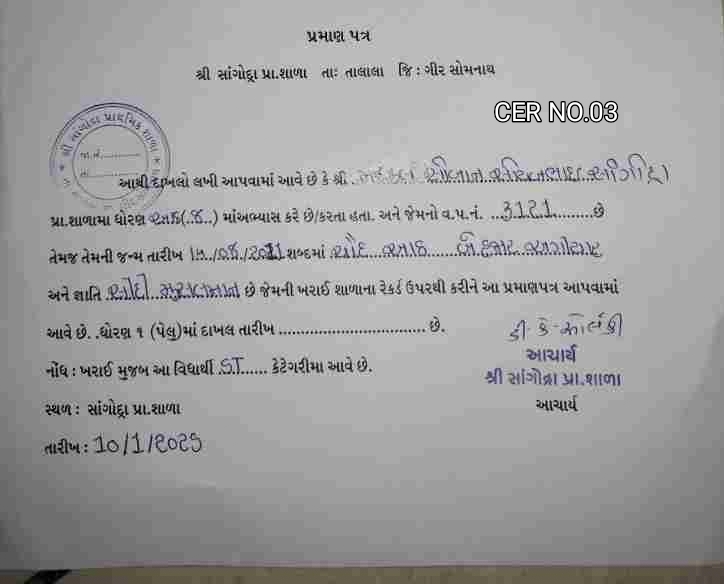 પ્રમાણ પત્ર
શ્રી સાંગોદ્રા પ્રા.શાળા તાઃ તાલાલા જિ : ગીર સોમનાથ
CER NO.03
શ્રી સાંગોદ્રા પ્રાથમિક શાળા
જા.નં............
તા............
આથી દાખલો લખી આપવામાં આવે છે કે શ્રી. સાંગોદ્રા
પ્રા.શાળામા ધોરણ આઠ(.૪..) માંઅભ્યાસ કરે છે/કરતા હતા. અને જેમનો વ.પ.નં. ..3121..........છે
તેમજ તેમની જન્મ તારીખ /૦૪/2011 શબ્દમાં બે હજાર અગીયાર
અને જ્ઞાતિ સીદી મુસલમાન છે જેમની ખરાઈ શાળાના રેકર્ડ ઉપરથી કરીને આ પ્રમાણપત્ર આપવામાં
આવે છે. .ધોરણ ૧ (પેલુ)માં દાખલ તારીખ ................................ છે.
ડી. કે. સોલંકી
આચાર્ય
નોંધ : ખરાઈ મુજબ આ વિદ્યાર્થી .ST...... કેટેગરીમા આવે છે.
શ્રી સાંગોદ્રા પ્રા.શાળા
સ્થળ : સાંગોદ્રા પ્રા.શાળા
આચાર્ય
તારીખ : 10/1/2025